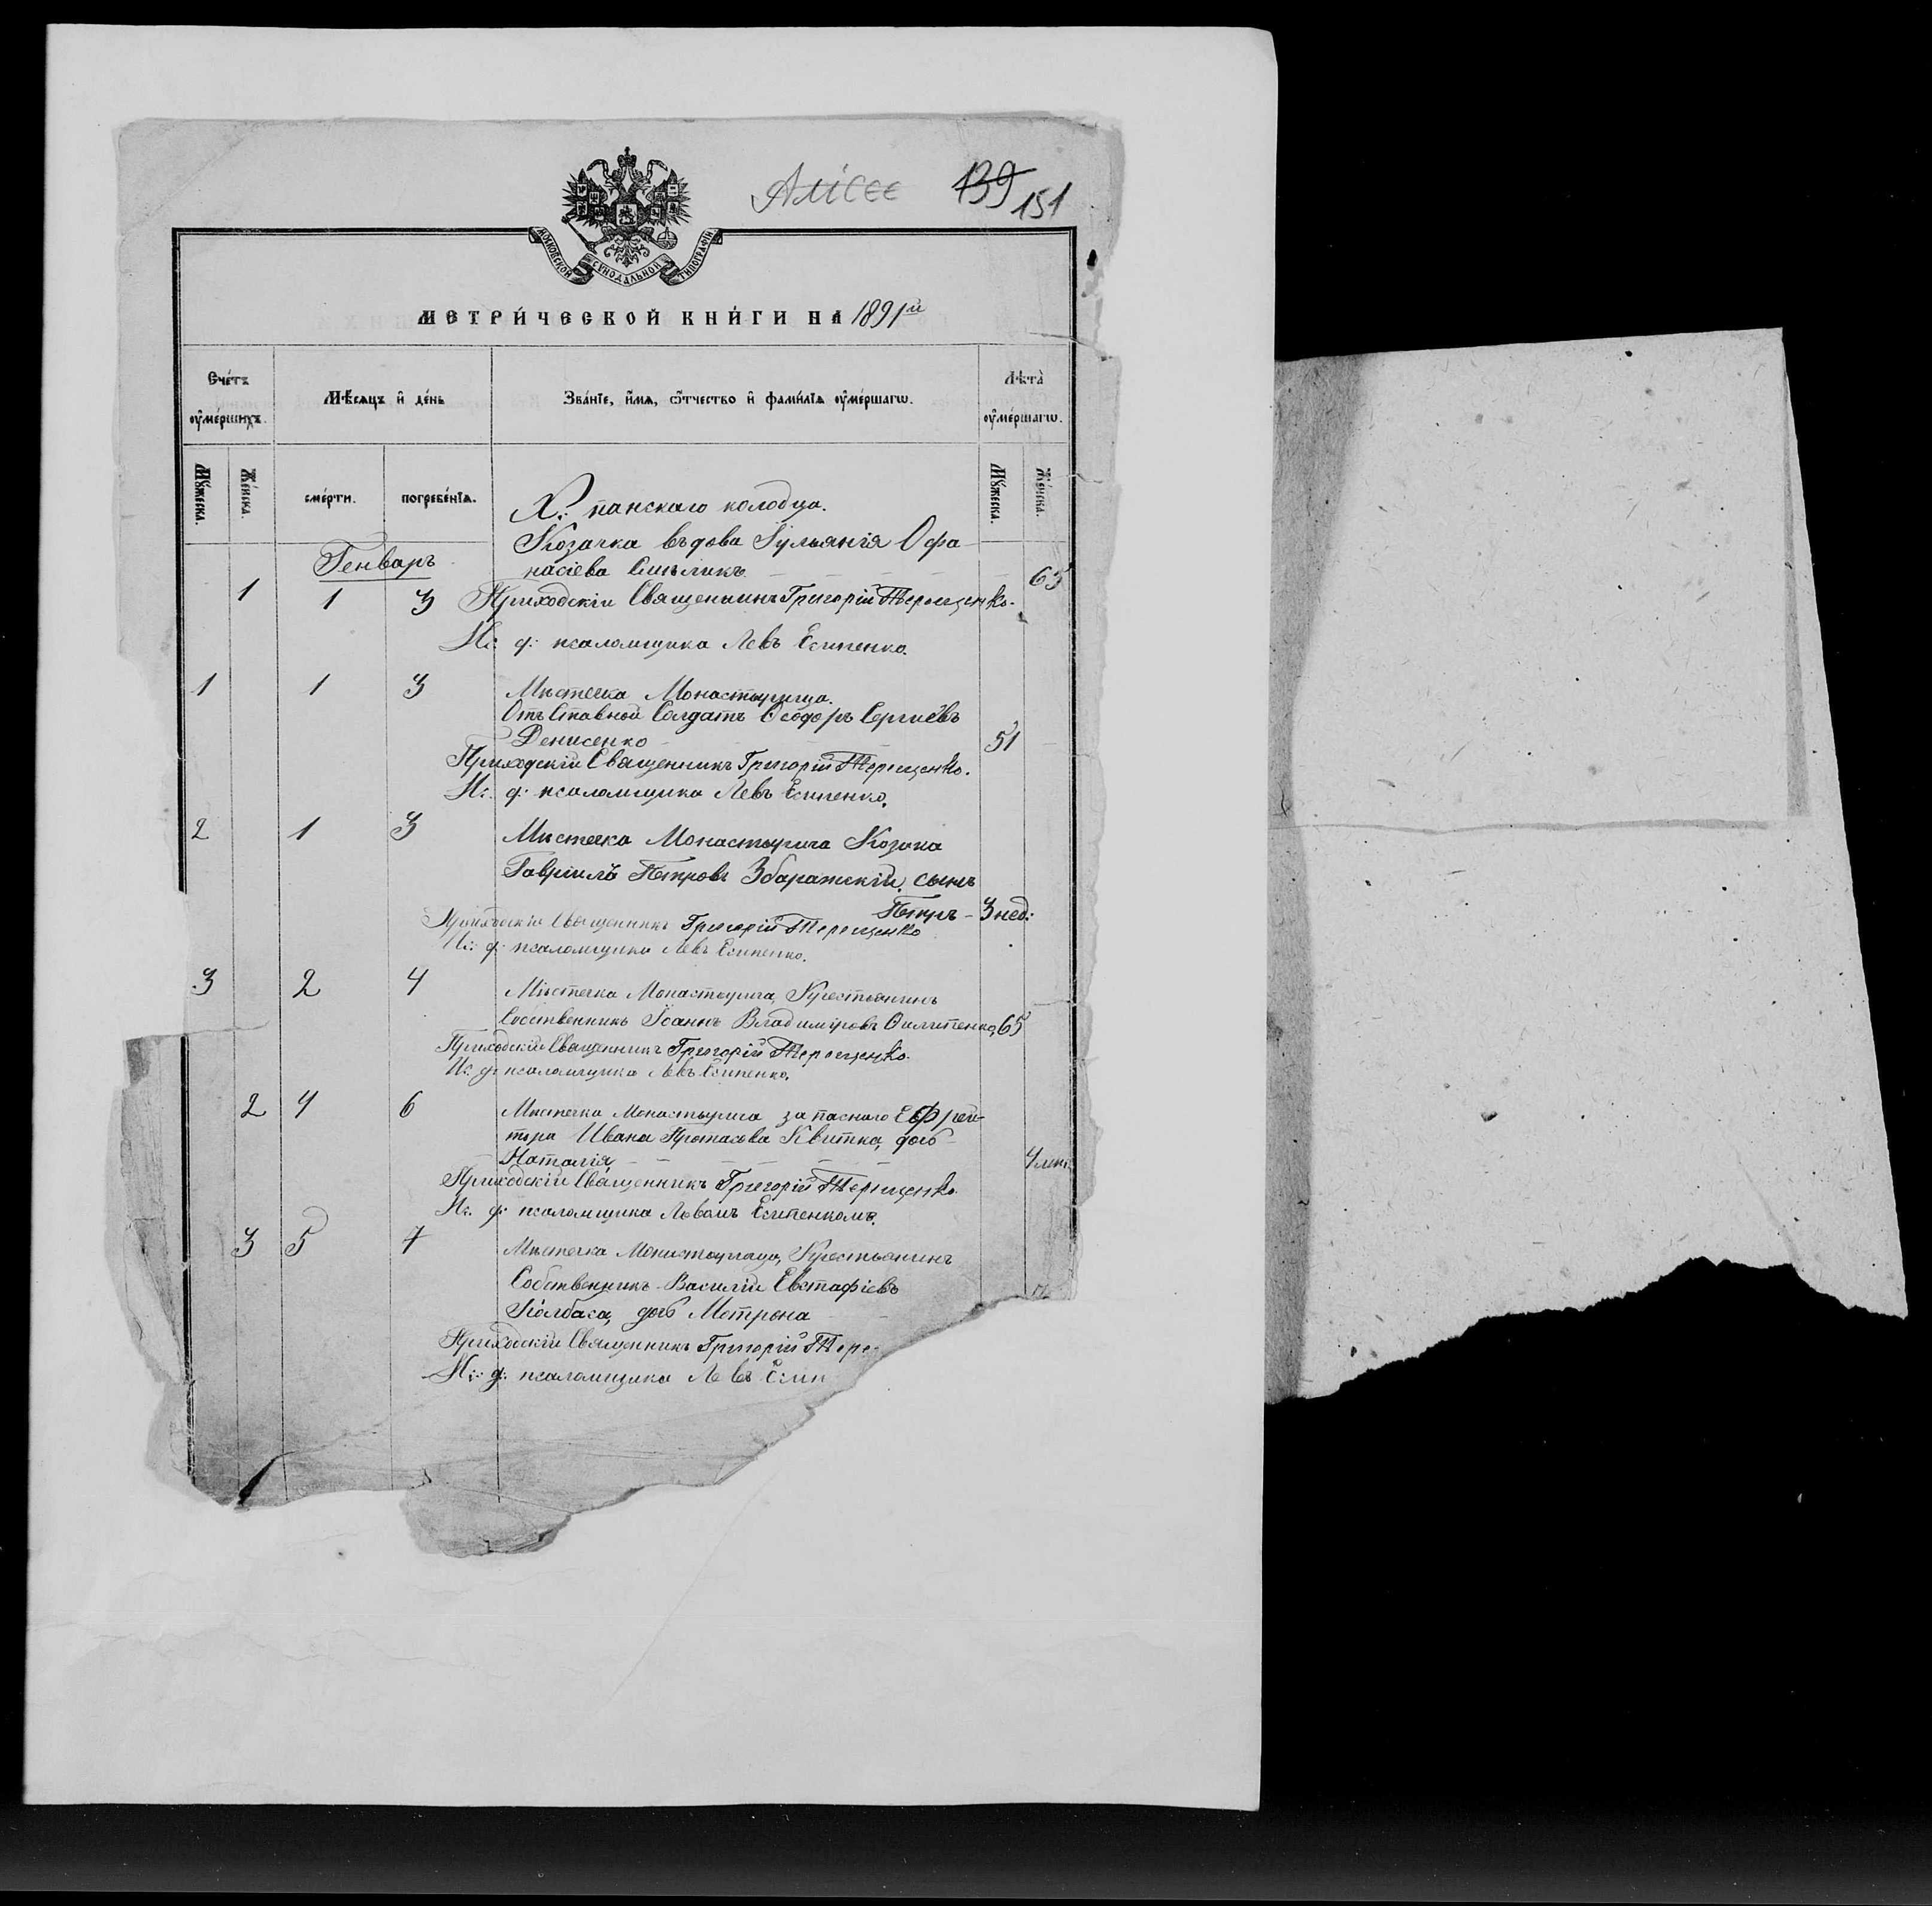 139 151
МОСКОВСКОЙ СѴНОДАЛЬНОЙ ТИПОГРАФІИ
МЕТРИ́ЧЕСКОЙ КНИ́ГИ НА 1891й
Сче́тъ оу҆ме́ршихъ.
Мѣ́сяцъ и҆ де́нь
Зва́нїе, и҆́мѧ, ѻ҆́тчество и҆ фами́лїѧ оу҆ме́ршагѡ.
Лѣта̀ оу҆ме́ршагѡ.
Мꙋ́жеска.
Же́нска.
сме́рти.
погребе́нїѧ.
Мꙋ́жеска.
Же́нска.
Х: панскаго колодца.
Генварь
Козачка вьдова Іульянія Офа
насіева
63
1 1 3 Приходскій Священникъ Григорій Терещенко.
Ис: д: псаломщика Левъ Есипенко.
1 1 3 Мѣстечка Монастырища.
Отъставной Солдатъ Ѳеодоръ Сергіевъ
Денисенко 51
Приходскій Священникъ Григорій Терещенко.
Ис: д: псаломщика Левъ Есипенко.
2 1 3 Мѣстечка Монастырища Козака
Гавріилъ Петровъ Збаражскій, сынъ
Петръ - 3 нед:
Приходскій Священникъ Григорій Терещенко
Ис: д: псаломщика Левъ Есипенко.
3 2 4 Мѣстечка Монастырища, Крестьянинъ
Собственникъ Іоаннъ Владиміровъ Филипенко, 65
Приходскій Священникъ Григорій Терещенко.
Ис: д: псаломщика Левъ Есипенко.
2 4 6 Мѣстечка Монастырища запаснаго Ефрей-
тора Ивана Протасова Квитка, дочь
Наталія
Приходскій Священникъ Григорій Терещенко.
Ис: д: псаломщика Львомъ Есипенкомъ.
3 5 7 Мѣстечка Монастырища, Крестьянинъ
Собственникъ Василій Евстафіевъ
Колбаса, дочь Мотрона
Приходскій Священникъ Григорій Тере
Ис: д: псаломщика Левъ Есип